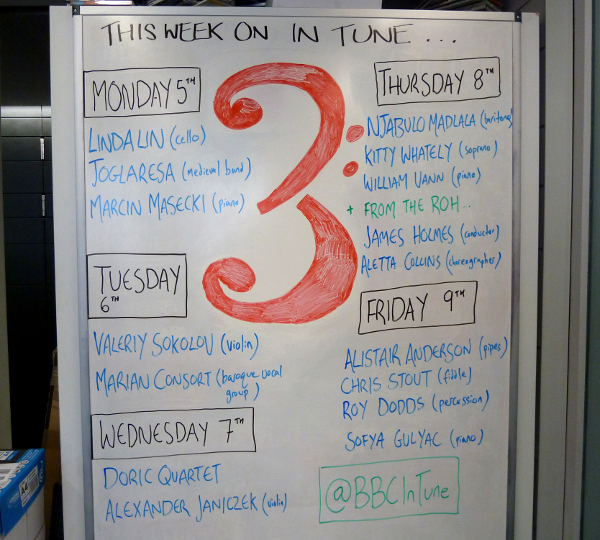 THIS WEEK ON IN TUNE...
MONDAY 5TH
LINDA LIN (cello)
JOGLARESA (medieval band)
MARCIN MASECKI (piano)
TUESDAY
6TH
VALERIY SOKOLOV (violin)
MARIAN CONSORT (baroque vocal
group)
WEDNESDAY 7TH
DORIC QUARTET
ALEXANDER JANICZEK (violin)
3:
THURSDAY 8TH
NJABULO MADLALA (baritone)
KITTY WHATELY (soprano)
WILLIAM VANN (piano)
+ FROM THE ROH...
JAMES HOLMES (conductor)
ALETTA COLLINS (choreographer)
FRIDAY 9TH
ALISTAIR ANDERSON (pipes)
CHRIS STOUT (fiddle)
ROY DODDS (percussion)
SOFYA GULYAC (piano)
@BBCInTune